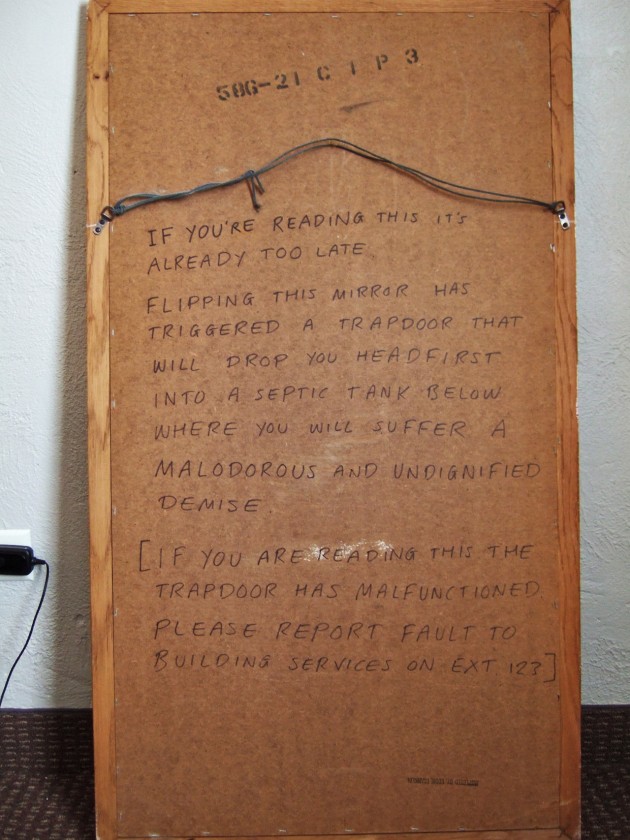 586-21 C 1 P 3
IF YOU'RE READING THIS IT'S
ALREADY TOO LATE
FLIPPING THIS MIRROR HAS
TRIGGERED A TRAPDOOR THAT
WILL DROP YOU HEADFIRST
INTO A SEPTIC TANK BELOW
WHERE YOU WILL SUFFER A
MALODOROUS AND UNDIGNIFIED
DEMISE
[IF YOU ARE READING THIS THE
TRAPDOOR HAS MALFUNCTIONED.
PLEASE REPORT FAULT TO
BUILDING SERVICES ON EXT 123]